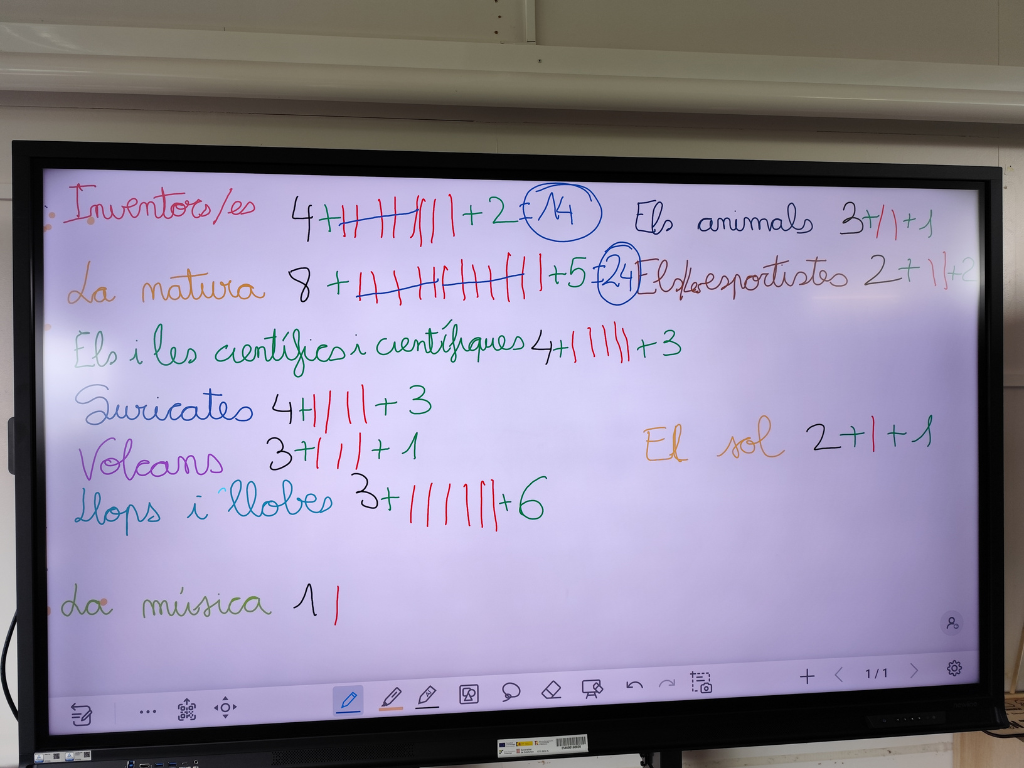 Inventors/es 4+|||||||| +2=14
Els animals 3+||+1
La natura 8+||||||||||| +5=24
Els/les esportistes 2+||+2
Els i les científics i científiques 4+|||||+3
Suricates 4+||||+3
Volcans 3+|||+1
El sol 2+|+1
Llops i llobes 3+||||||+6
La música 1 |
1/1